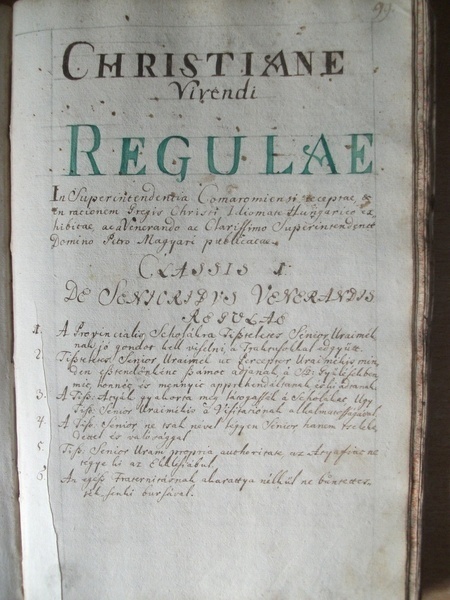 CHRISTIANE
Vivendi
REGULAE
In Superintendentia Comaromiensi receptae, &
in racionem Gregis Christi Idiomate Hungarico ex
hibitae, ac a Venerando ac Clarissimo Superintendente
Domino Petro Magyari publicatae
CLASSIS I
DE SENIORIBUS VENERANDIS
REGULAE
1. A Provincialis Scholákra Tiszteletes Senior Uraimék
nak jó gondot kell viselni a
2. Tiszteletes Senior Uraimék ut Perceptor Uraimékis min
den esztendönként számot adjanak a Sz: Gyülésekben
mit, honnét és mennyit
3. A Tiss: Atyák gyakorta meg látogassák a Scholákat, Ugy
Tiszt Senior Uraimékis a Visitationak alkalmatosságával
4. A Tiss: Senior ne tsak nevel legyen Senior hanem
és valósággal
5. Tiss: Senior Uram propria authoritate, az Atyafiat ne
tegye ki az Ekklesiábul,
6. Az egész Fraternitásnak akarattya nélkül ne büntettes
sék senki bursával.